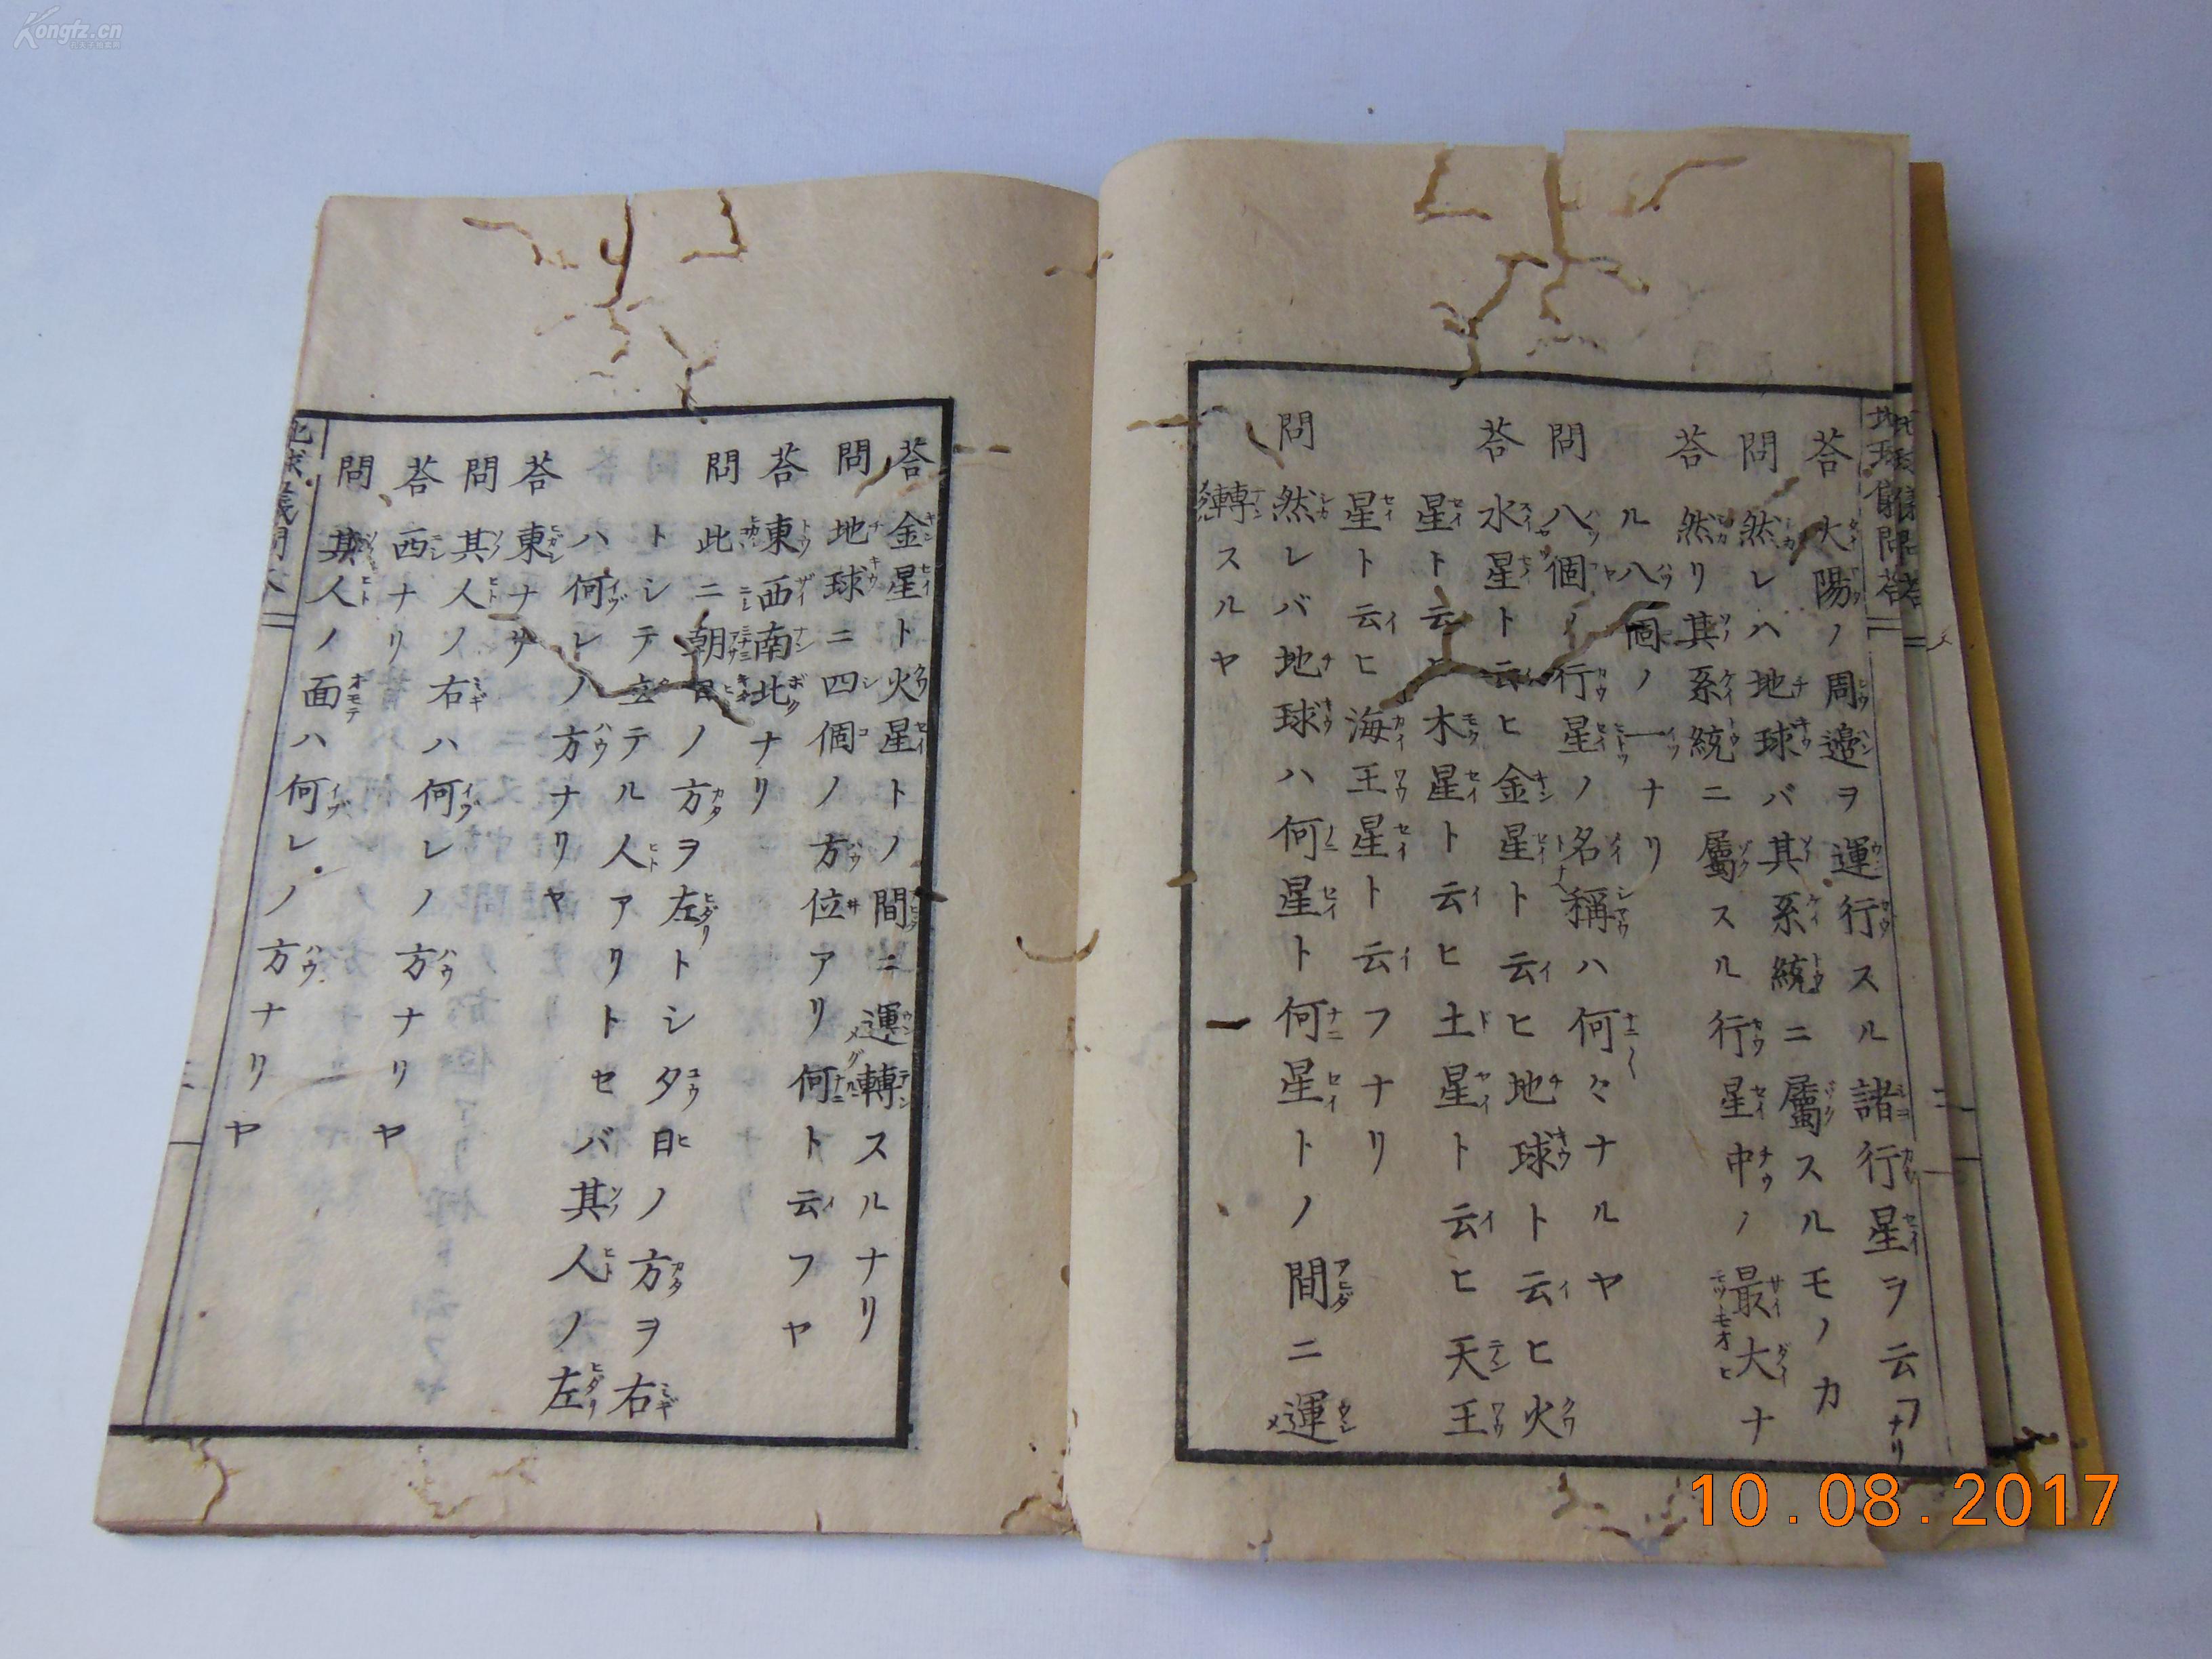 答 大陽ノ周邉ヲ運行スル諸行星ヲ云フナリ
問 然レハ地球バ其系統ニ屬スルモノカ
答 然リ其系統ニ屬スル行星中ノ最大ナ
ル八個ノ一ナリ
問 八個ノ行星ノ名稱ハ何々ナルヤ
答 水星ト云ヒ金星ト云ヒ地球ト云ヒ火
星ト云ヒ木星ト云ヒ土星ト云ヒ天王
星ト云ヒ海王星ト云フナリ
問 然レバ地球ハ何星ト何星トノ間ニ運
轉スルヤ
答 金星ト火星トノ間ニ運轉スルナリ
問 地球ニ四個ノ方位アリ何ト云フヤ
答 東西南北ナリ
問 此ニ朝日ノ方ヲ左トシ夕日ノ方ヲ右
トシテ立テル人アリトセバ其人ノ左
ハ何レノ方ナリヤ
答 東ナリ
問 其人ノ右ハ何レノ方ナリヤ
答 西ナリ
問 其人ノ面ハ何レノ方ナリヤ
10.08.2017
Kongfz.cn